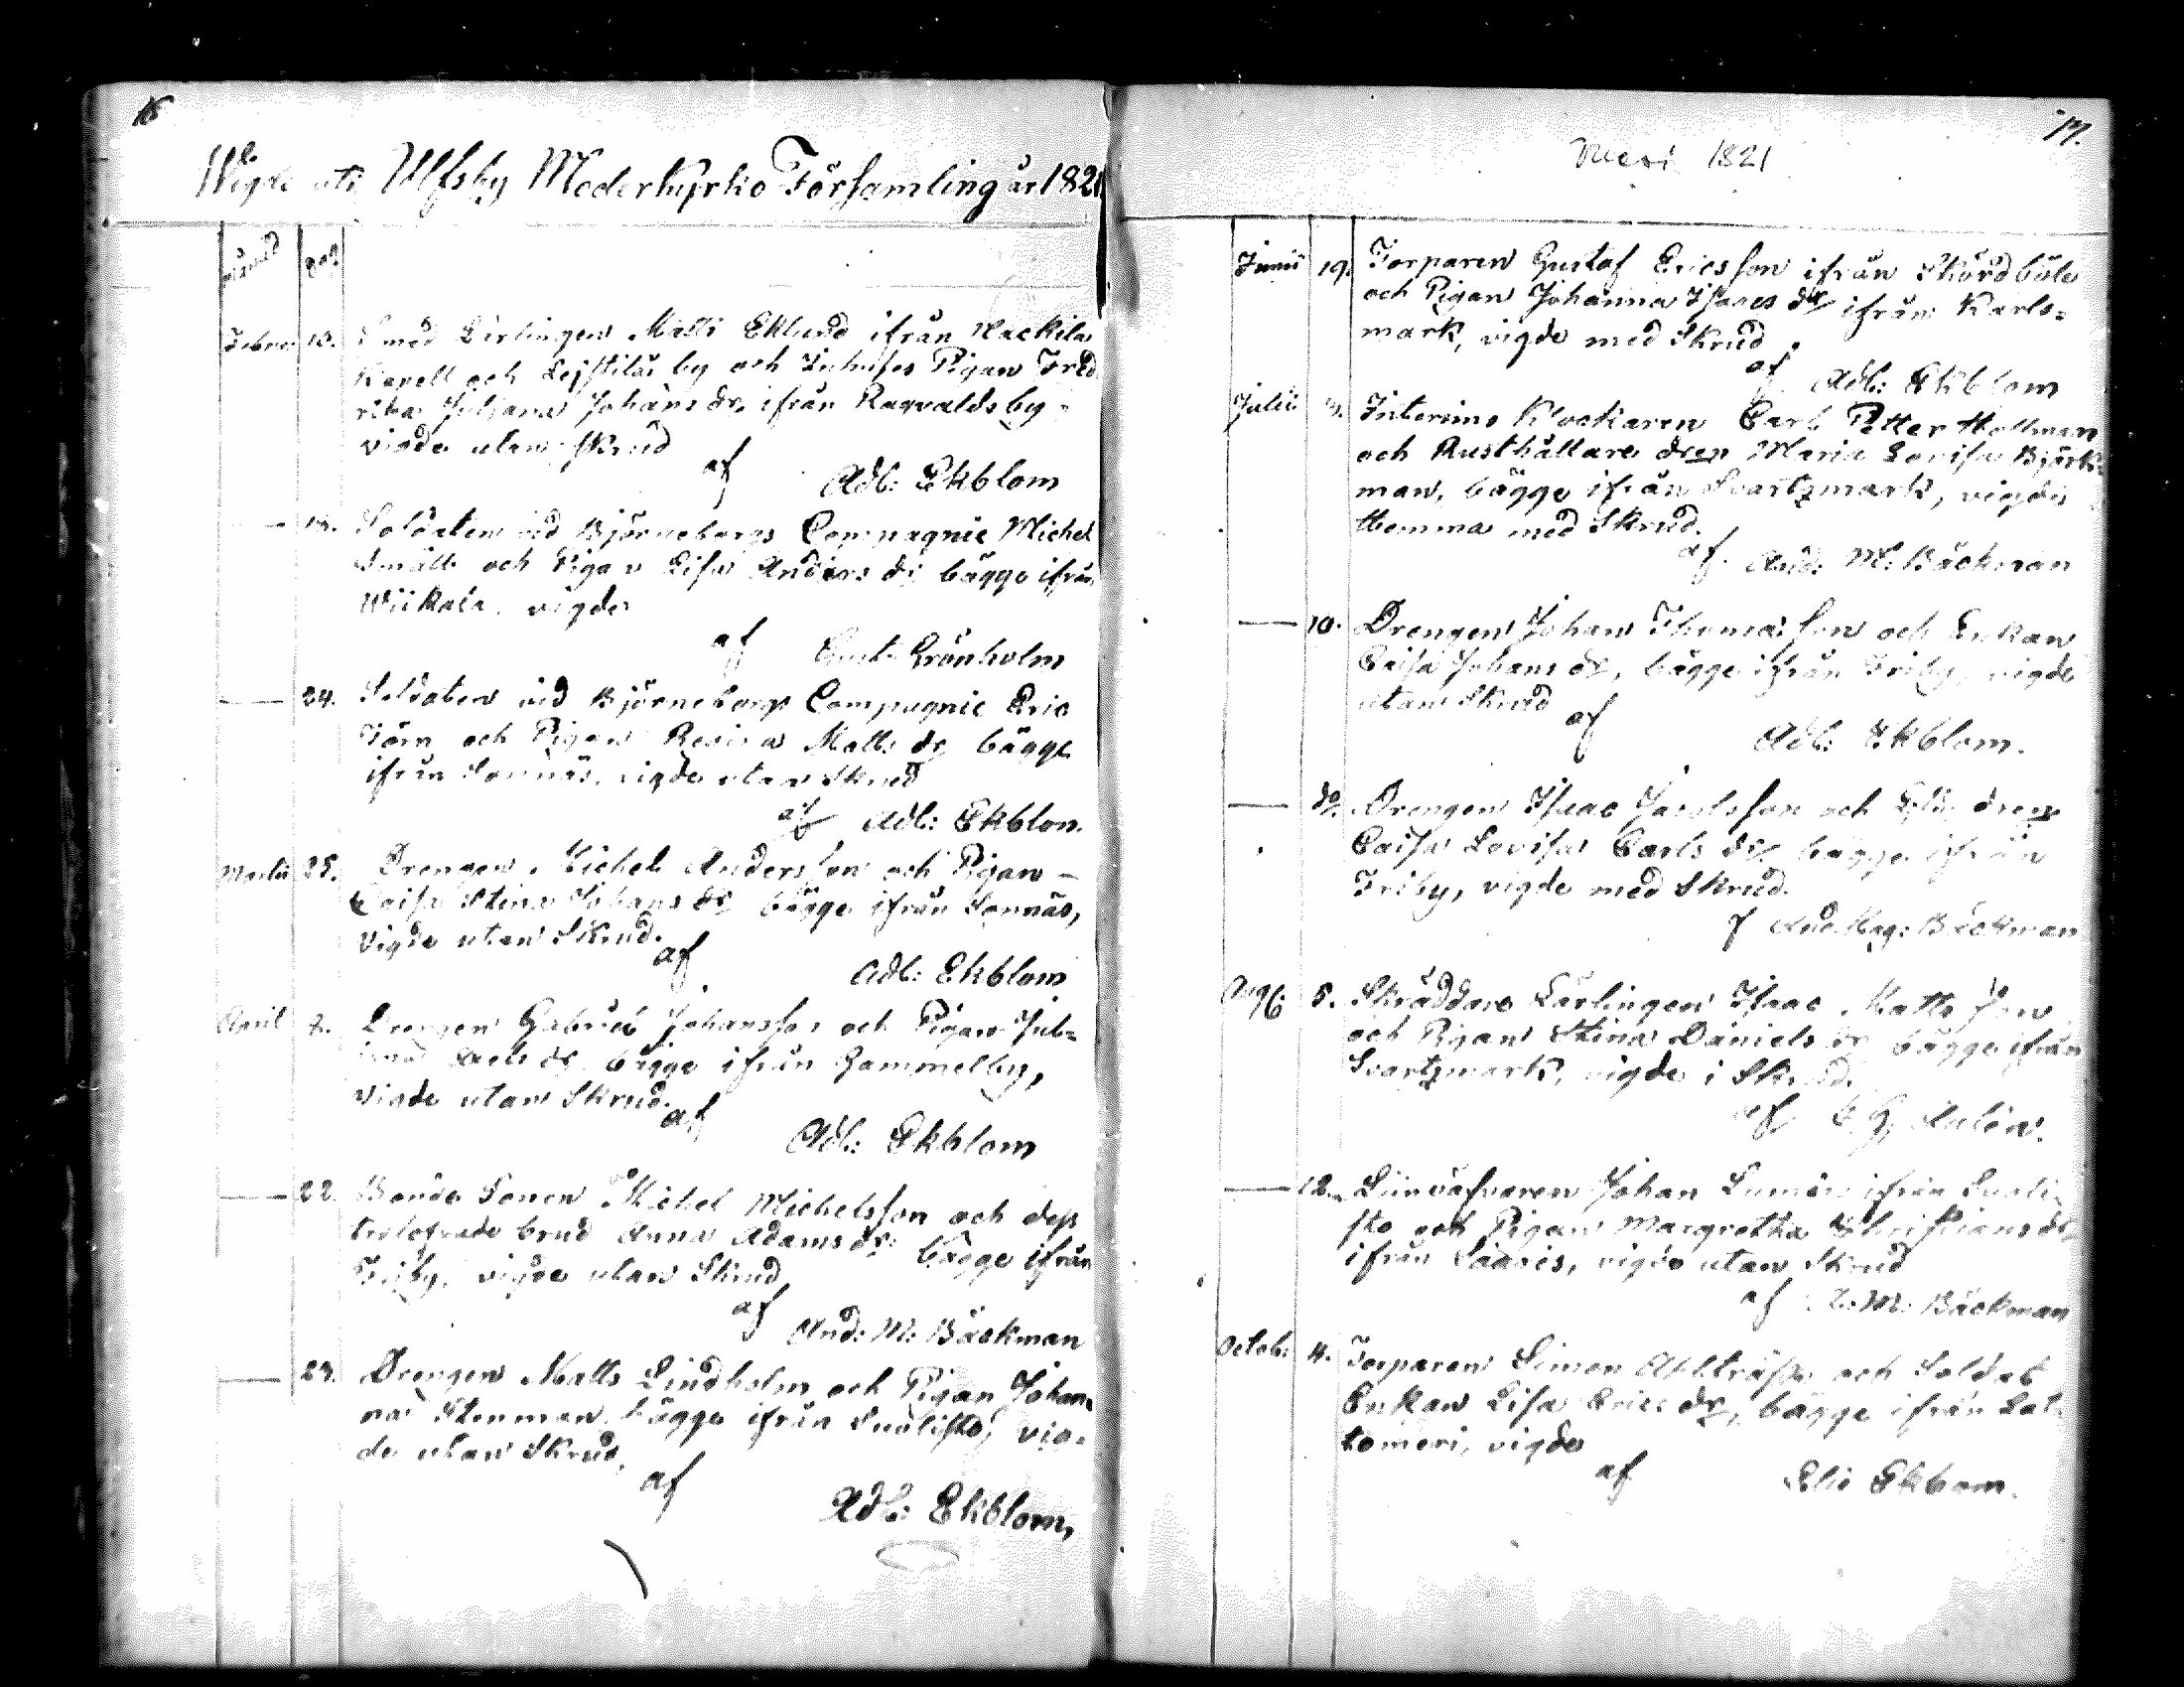 16
Wigde uti Ulfsby Moderkyrko Församling år 1821
Månad Dag
Febru: 18. Smed Lärlingen Matti Eklund ifrån Nackila
Kapell och Lejstilä by och Inhyses Pigan Fred
rika Juliana Johans dr, ifrån Ragvaldsby -
vigde utan Skrud
af Adl: Ekblom
— Soldaten vid Björneborgs Compagnie Michel
Smált och Pigan Lisa Anders dr bägge ifrån
Wiikala. vigde
af Gust: Grönholm
— 24. Soldaten vid Björneborgs Compagnie Eric
Törn och Pigan Regina Matts dr bägge
ifrån Sonnäs. vigde utan Skrud
af Adl: Ekblom.
Martii 25. Drengen Michel Andersson och Pigan -
Caisa Stina Johans dr bägge ifrån Sonnäs,
vigde utan Skrud.
af Adl: Ekblom
April 2. Drengen Gabriel Johansson och Pigan Jul=
bägge ifrån Gammelby,
vigde utan Skrud.
af Adl: Ekblom
— 22. Bonde Sonen Michel Michelsson och dess
trolofvade brud Anna Adams dr: bägge ifrån
Friby, vigde utan Skrud,
af And: M: Bäckman
— 23. Drengen Matts Lindholm och Pigan Johan=
na Stenman, bägge ifrån Suolisto, vig=
de utan Skrud,
af Adl: Ekblom,
17.
Meri 1821
Junii 19. Torparen Gustaf Ericsson ifrån Skördböle
och Pigan Johanna Isacs dr ifrån Karls=
mark, vigde med Skrud
af Adl: Ekblom
Julii Interims Klockaren Carl Petter Hellman
och Rusthållare dren Maria Lovisa Björk=
man, bägge ifrån Svartzmark, vigde
Hemma med Skrud.
af And: M: Bäckman
— 10. Drengen Johan Thomasson och Enkan
Caisa Johans dr, bägge ifrån Friby, vigde
utan Skrud
af Adl: Ekblom.
— do. Drengen Isaac Jacobsson och dren
Caisa Lovisa Carls dr, bägge ifrån
Friby, vigde med Skrud.
f And: Mag: Bäckman
Aug: 5. Skräddare Lärlingen Isaac Matts Son
och Pigan Stina Daniels dr bägge ifrån
Svartzmark, vigde i Skrud.
af
— 12. Linväfvaren Johan Lumén ifrån Suoli=
sto och Pigan Margretha Christians dr
ifrån Saaris, vigde utan Skrud
af A: M: Bäckman
Octob: 4. Torparen Simon och Soldat
Enkan Lisa Erics dr, bägge ifrån Lat=
tomeri, vigde
af Elis Ekbom.